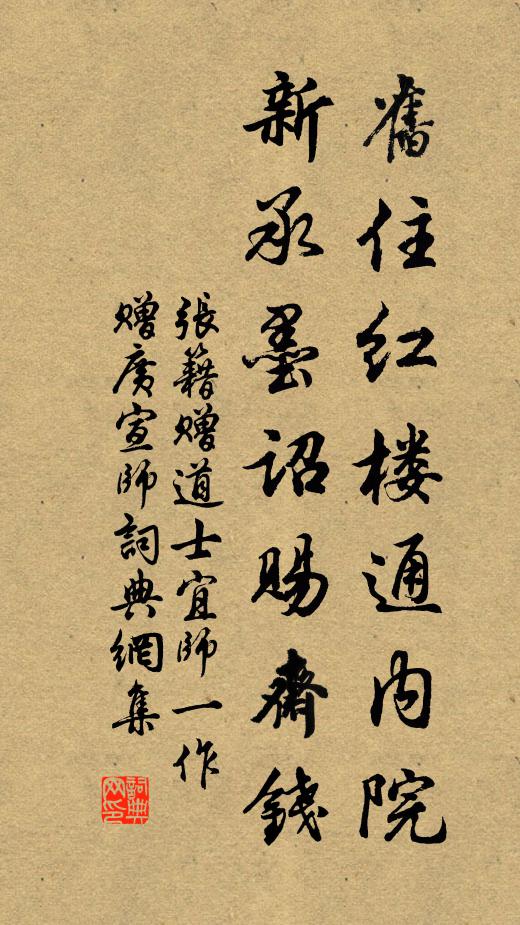 舊住紅楼通内院
新承墨詔賜齋錢
張籍赠道士宜師一作
赠廣宣師詞典網集
詞典网印